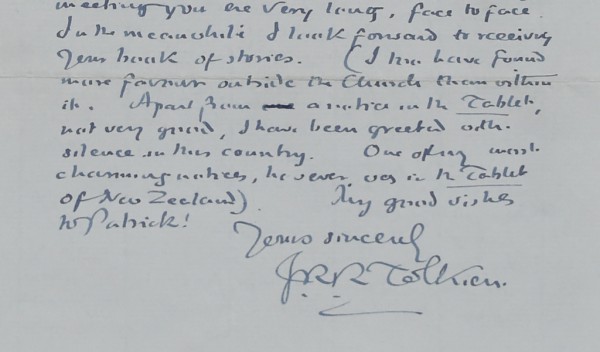 meeting you ere very long, face to face.
In the meanwhile I look forward to receiving
your book of stories. (I too have found
more favour outside the Church than within
it. Apart from a notice in the Tablet,
not very good, I have been greeted with
silence in this country. One of my most
charming notices, however, was in the Tablet
of New Zealand). My good wishes
to Patrick!
Yours sincerely
J.R.R. Tolkien.